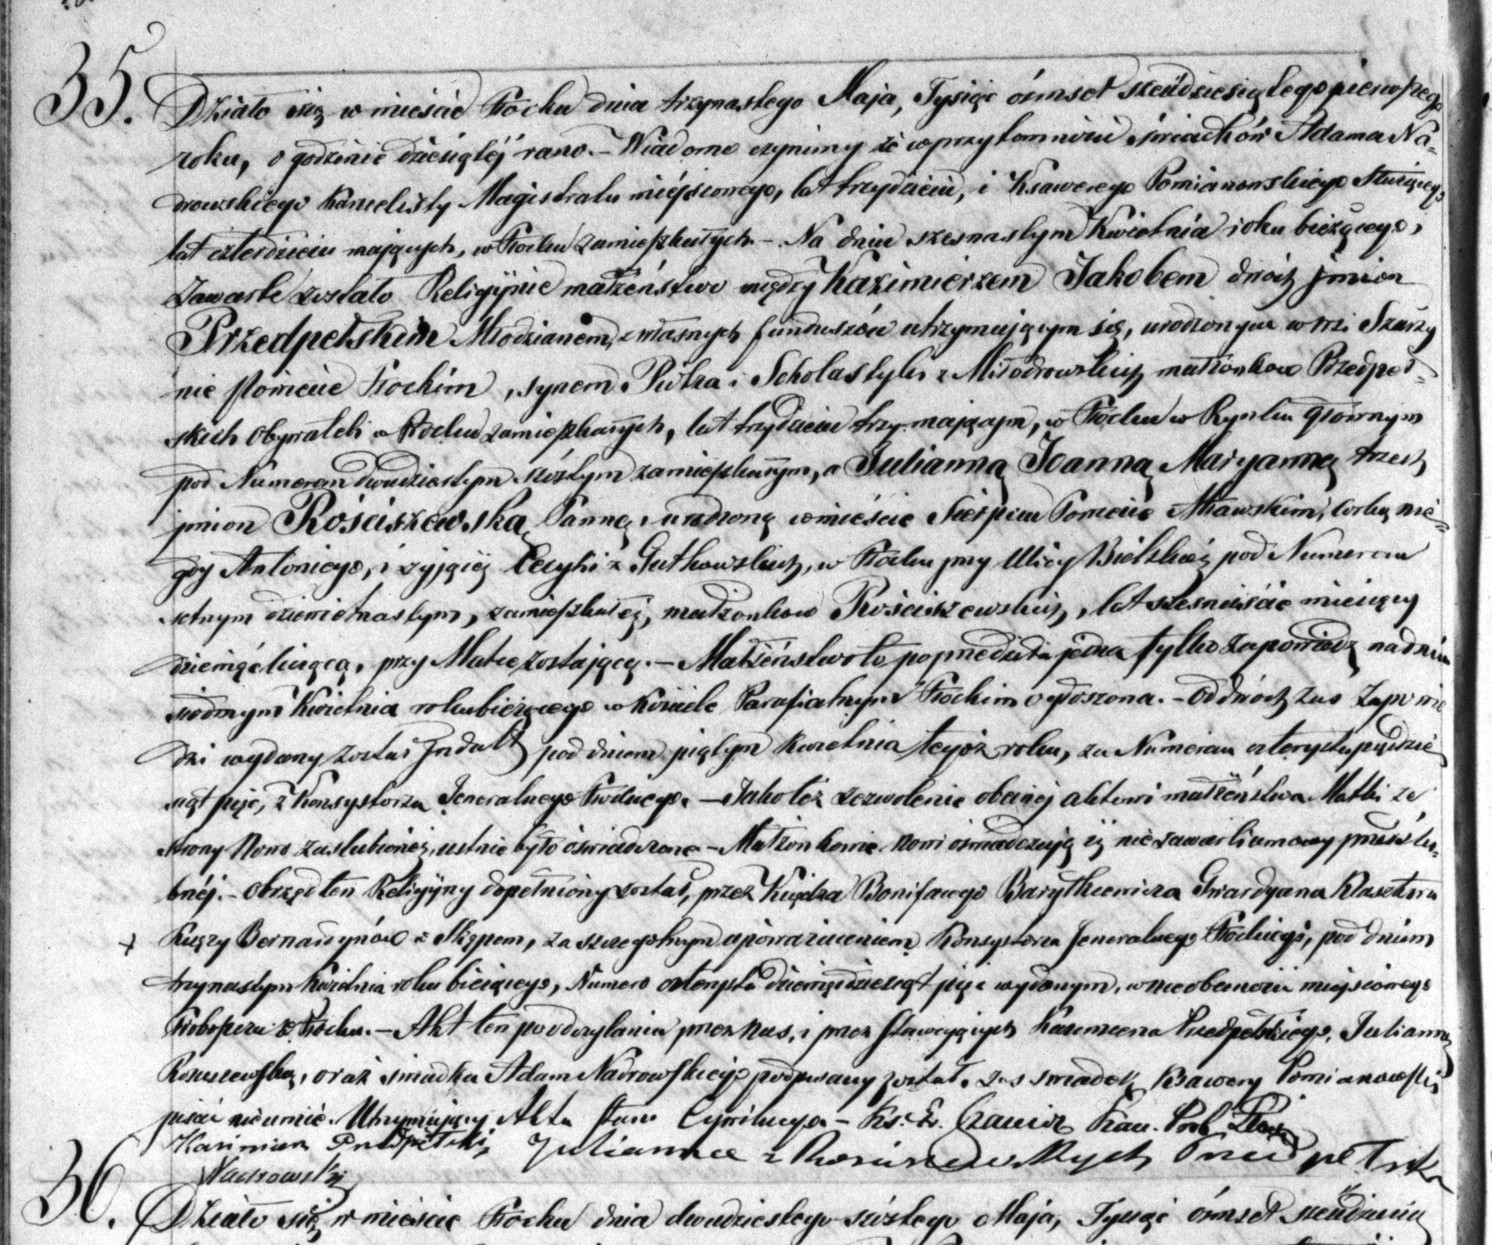 35.
Działo się w mieście Płocku dnia trzynastego Maja, Tysiąc ośmset sześćdziesiątego pierwszego
roku, o godzinie dziesiątéj rano. – Wiadomo czynimy że w przytomności świadków Adama Na=
drowskiego Kancelisty Magistratu miejscowego, lat trzydzieści, i Ksawerego Pomianowskiego Służącego,
lat czterdzieści mających, w Płocku zamieszkałych – Na dniu szesnastym Kwietnia roku bieżącego,
Zawarte zostało Religijnie małżeństwo między Kazimierzem Jakobem dwóch jmion
Przedpełskim Młodzianem, z własnych funduszów utrzymującym się, urodzonym w wsi
nie Powiecie Płockim, synem Piotra i Scholastyki z Miłodrowskich małżonków Przedpeł=
skich Obywateli w Płocku zamieszkałych, lat trzydzieści trzy mającym, w Płocku w Rynku głównym
pod Numerem dwudziestym szóstym zamieszkałym, a Julianną Joanną Maryanną trzech
jmion Rościszewską Panną, urodzoną w mieście Sierpcu Powiecie Mławskim, córką nie=
gdy Antoniego, i żyjącéj Cecylii z Gutkowskich, w Płocku przy Ulicy Bielskiéj pod Numerem
setnym dziewiętnastym, zamieszkałéj, małżonków Rościszewskich, lat sześnaście miesięcy
dziewięć liczącą, przy Matce zostającą. – Małżeństwo to poprzedziła jedna tylko zapowiedź na dniu
siódmym Kwietnia roku bieżącego w Kościele Parafialnym Płockim ogłoszona. – Od dwóch zaś Zapowie
dzi wydany został Jndult pod dniem piątym Kwietnia tegoż roku, za Numerem czterysta pięćdzie
siąt pięć, z Konsystorza Jeneralnego Płockiego. – Jako też zezwolenie obecnéj aktowi małżeństwa Matki ze
strony Nowo zaślubionéj, ustnie było oświadczone – Małżonkowie nowi oświadczają iż nie zawarli umowy przedślu=
bnéj. – Obrzęd ten Religijny dopełniony został, przez Księdza Bonifacego Gwardyana Klasztoru
Księży Bernardynów z Skępem, za szczególnym upoważnieniem Konsystorza Jeneralnego Płockiego, pod dniem
trzynastym Kwietnia roku bieżącego, Numero czterysta dziewięćdziesiąt pięć wydanym, w nieobecności miejscowego
Proboszcza z Płocka. – Akt ten po odczytaniu przez nas, i przez Stawających Kazimierza Przedpełskiego, Juliannę
Rościszewską, oraz świadka Adama Nadrowskiego podpisany został, zaś świadek Xawery Pomianowski
pisać nieumie. Utrzymujący Akta Stanu Cywilnego – Ks. Kan. Prob. Płocki
Kazimierz Przedpełski, Julianna z Rościszewskych Przedpełska
Nadrowski
36. Działo się, w mieście Płocku dnia dwudziestego szóstego Maja, Tysiąc ośmset sześćdziesią